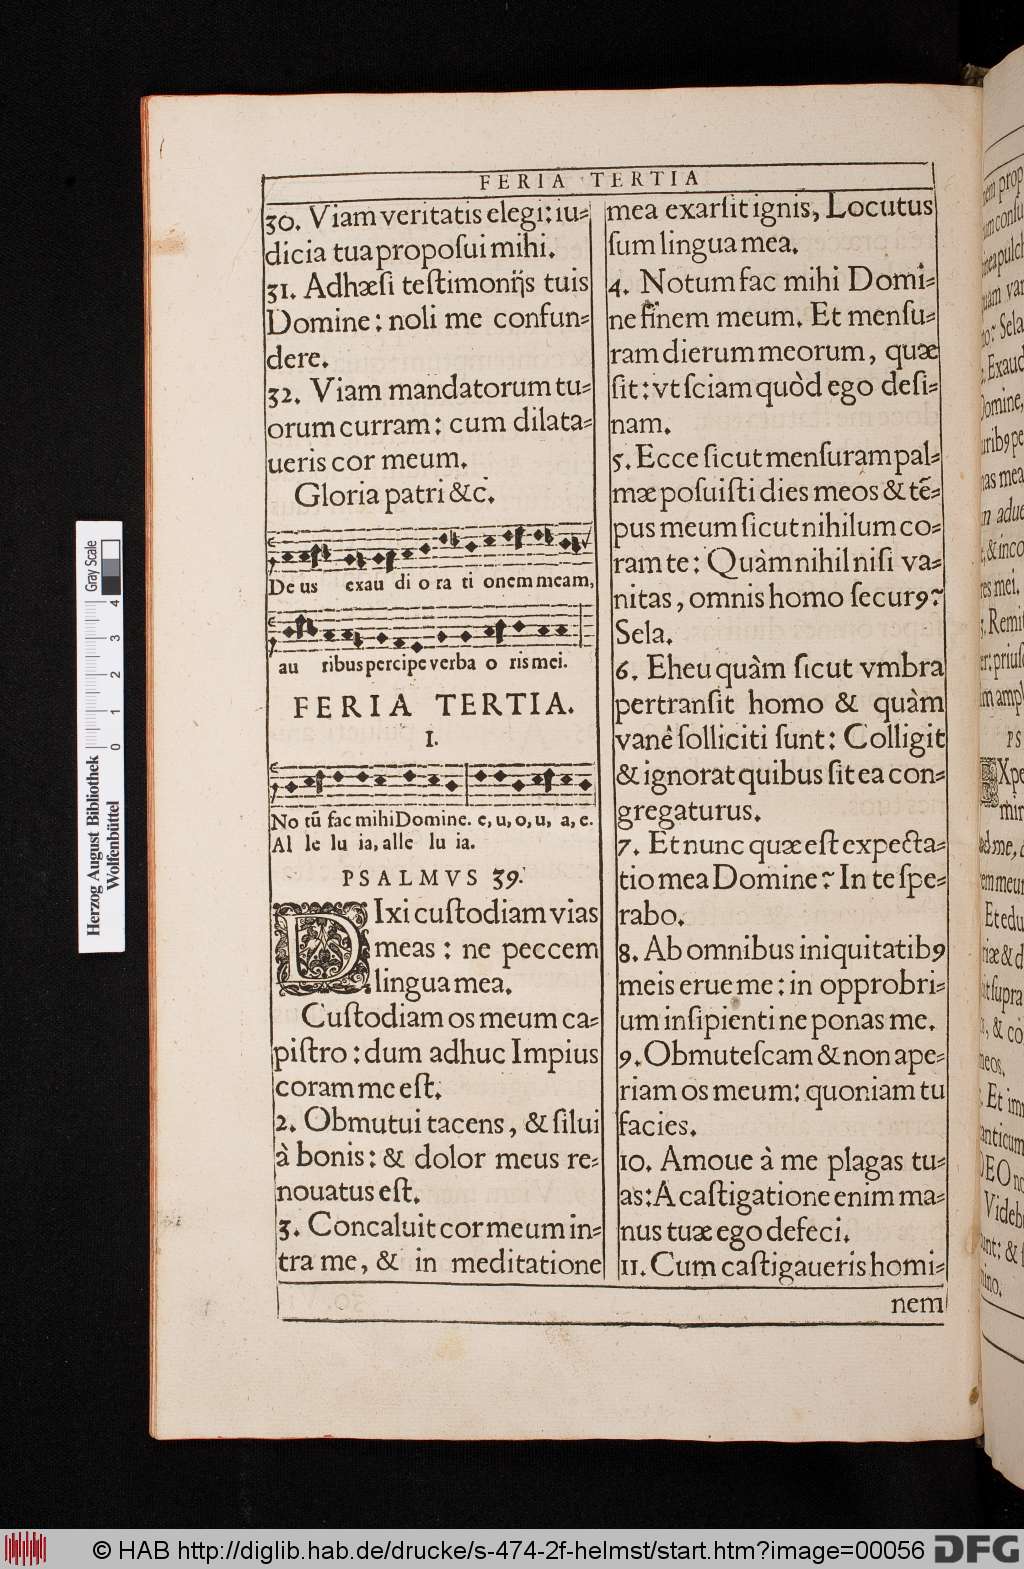 FERIA TERTIA
30. Viam veritatis elegi: iu⸗
dicia tua propoſui mihi.
31. Adhæſi teſtimonijs tuis
Domine: noli me confun⸗
dere.
32. Viam mandatorum tu⸗
orum curram: cum dilata⸗
ueris cor meum.
Gloria patri &c.
De us exau di o ra ti onem meam,
au ribus percipe verba o ris mei.
FERIA TERTIA.
I.
No tū fac mihi Domine. e, u, o, u, a, e.
Al le lu ia, alle lu ia.
PSALMVS 39.
DIxi cuſtodiam vias
meas: ne peccem
lingua mea.
Cuſtodiam os meum ca⸗
piſtro: dum adhuc Impius
coram me eſt.
2. Obmutui tacens, & ſilui
à bonis: & dolor meus re⸗
nouatus eſt.
3. Concaluit cor meum in⸗
tra me, & in meditatione
mea exarſit ignis, Locutus
ſum lingua mea.
4. Notum fac mihi Domi⸗
ne finem meum. Et menſu⸗
ram dierum meorum, quæ
ſit: vt ſciam quòd ego deſi⸗
nam.
5. Ecce ſicut menſuram pal⸗
mæ poſuiſti dies meos & tē⸗
pus meum ſicut nihilum co⸗
ram te: Quàm nihil niſi va⸗
nitas, omnis homo ſecurꝰ?
Sela.
6. Eheu quàm ſicut vmbra
pertranſit homo & quàm
vanè ſolliciti ſunt: Colligit
& ignorat quibus ſit ea con⸗
gregaturus.
7. Et nunc quæ eſt expecta⸗
tio mea Domine? In te ſpe⸗
rabo.
8. Ab omnibus iniquitatibꝰ
meis erue me: in opprobri⸗
um inſipienti ne ponas me.
9. Obmuteſcam & non ape⸗
riam os meum: quoniam tu
facies.
10. Amoue à me plagas tu⸗
as: A caſtigatione enim ma⸗
nus tuæ ego defeci.
11. Cum caſtigaueris homi⸗
nem
Herzog August Bibliothek
Wolfenbüttel
Gray Scale
0 1 2 3 4
© HAB http://diglib.hab.de/drucke/s-474-2f-helmst/start.htm?image=00056
DFG